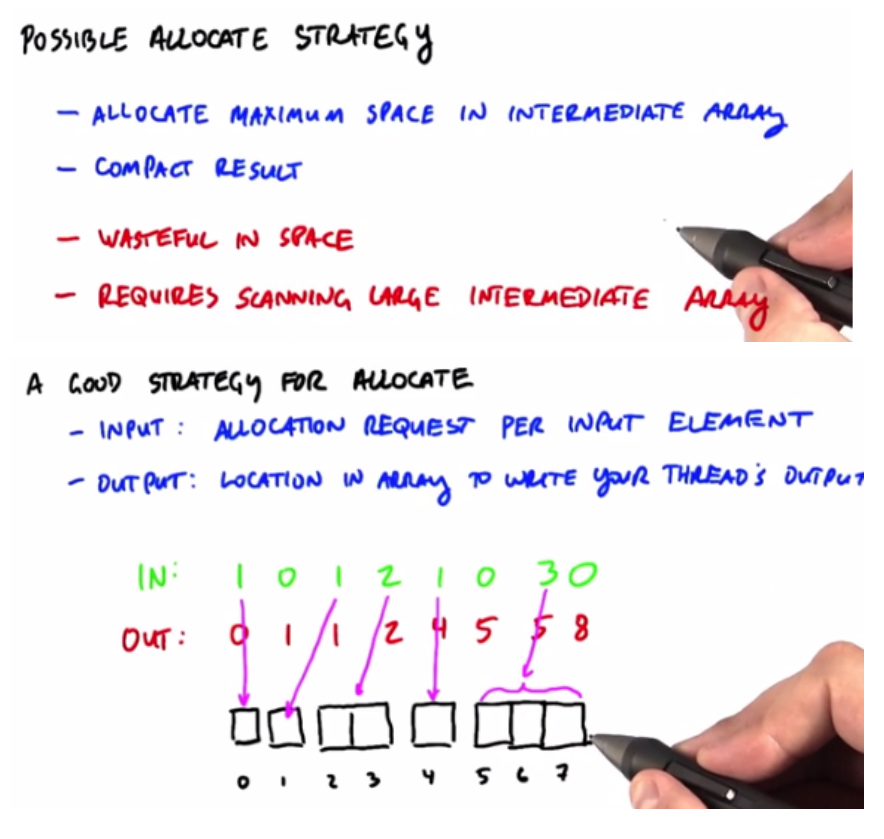 POSSIBLE ALLOCATE STRATEGY
- ALLOCATE MAXIMUM SPACE IN INTERMEDIATE ARRAY
- COMPACT RESULT
- WASTEFUL IN SPACE
- REQUIRES SCANNING LARGE INTERMEDIATE ARRAY
A GOOD STRATEGY FOR ALLOCATE
- INPUT: ALLOCATION REQUEST PER INPUT ELEMENT
- OUTPUT: LOCATION IN ARRAY TO WRITE YOUR THREAD'S OUTPUT
IN: 1 0 1 2 1 0 3 0
OUT: 0 1 1 2 4 5 5 8
0 1 2 3 4 5 6 7